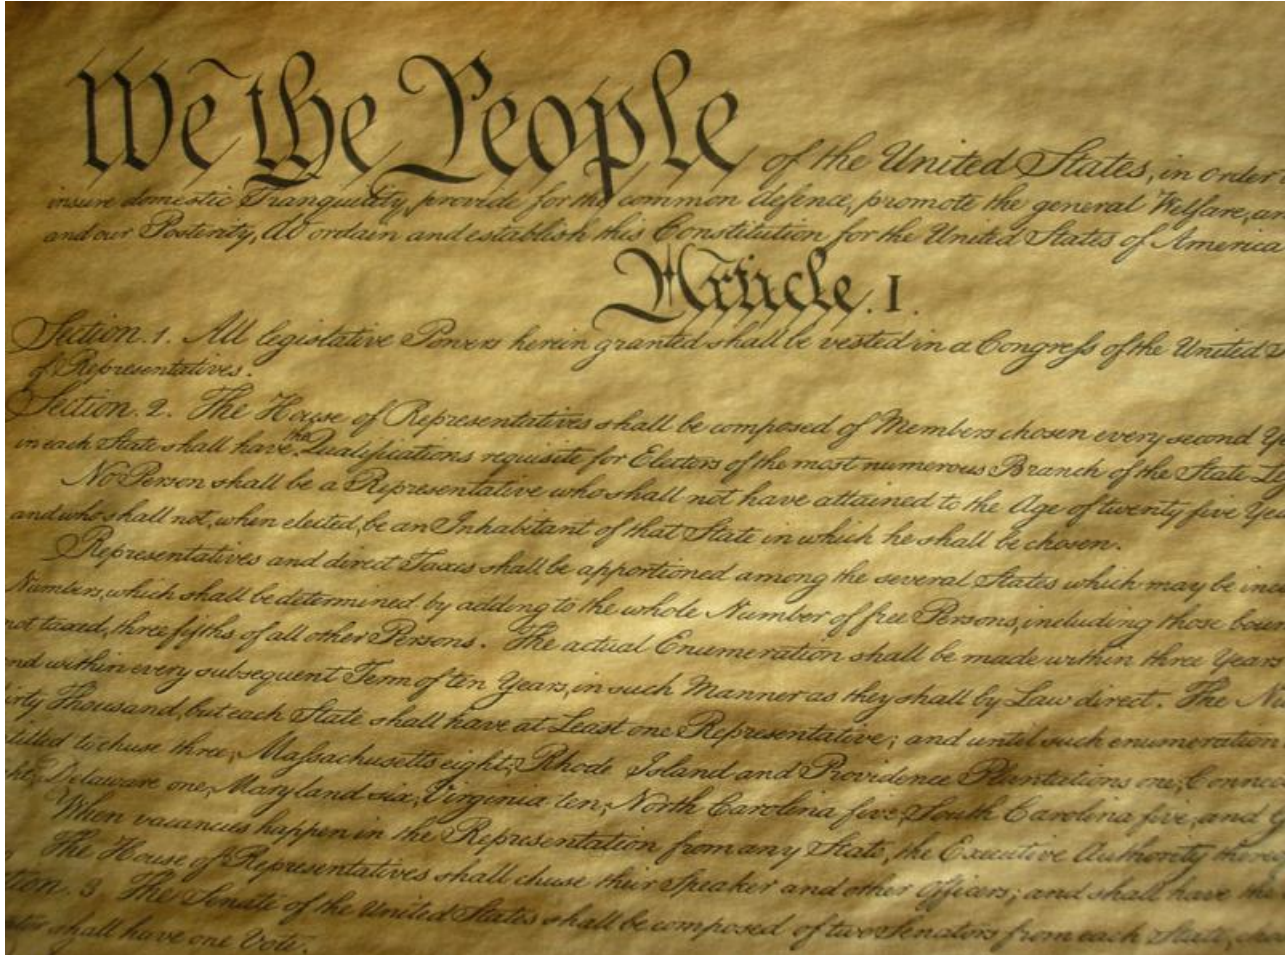 We the People of the United States, in order
insure domestic Tranquility, provide for the common defence, promote the general Welfare, an
and our Posterity, do ordain and establish this Constitution for the United States of America
Article. I.
Section. 1. All legislative Powers herein granted shall be vested in a Congress of the United
of Representatives.
Section. 2. The House of Representatives shall be composed of Members chosen every second Y
in each State shall have the Qualifications requisite for Electors of the most numerous Branch of the State Le
No Person shall be a Representative who shall not have attained to the Age of twenty five Yea
and who shall not, when elected, be an Inhabitant of that State in which he shall be chosen.
Representatives and direct Taxes shall be apportioned among the several States which may be inc
Numbers, which shall be determined by adding to the whole Number of free Persons, including those boun
not taxed, three fifths of all other Persons. The actual Enumeration shall be made within three Years
nd within every subsequent Term of ten Years, in such Manner as they shall by Law direct. The Nu
irty Thousand, but each State shall have at Least one Representative; and until such enumeration
titled to chuse three, Massachusetts eight, Rhode Island and Providence Plantations one, Connec
ht, Delaware one, Maryland six, Virginia ten, North Carolina five, South Carolina five, and G
When vacancies happen in the Representation from any State, the Executive Authority there
The House of Representatives shall chuse their Speaker and other Officers; and shall have the
tion. 3 The Senate of the United States shall be composed of two Senators from each State, cho
ator shall have one Vote.